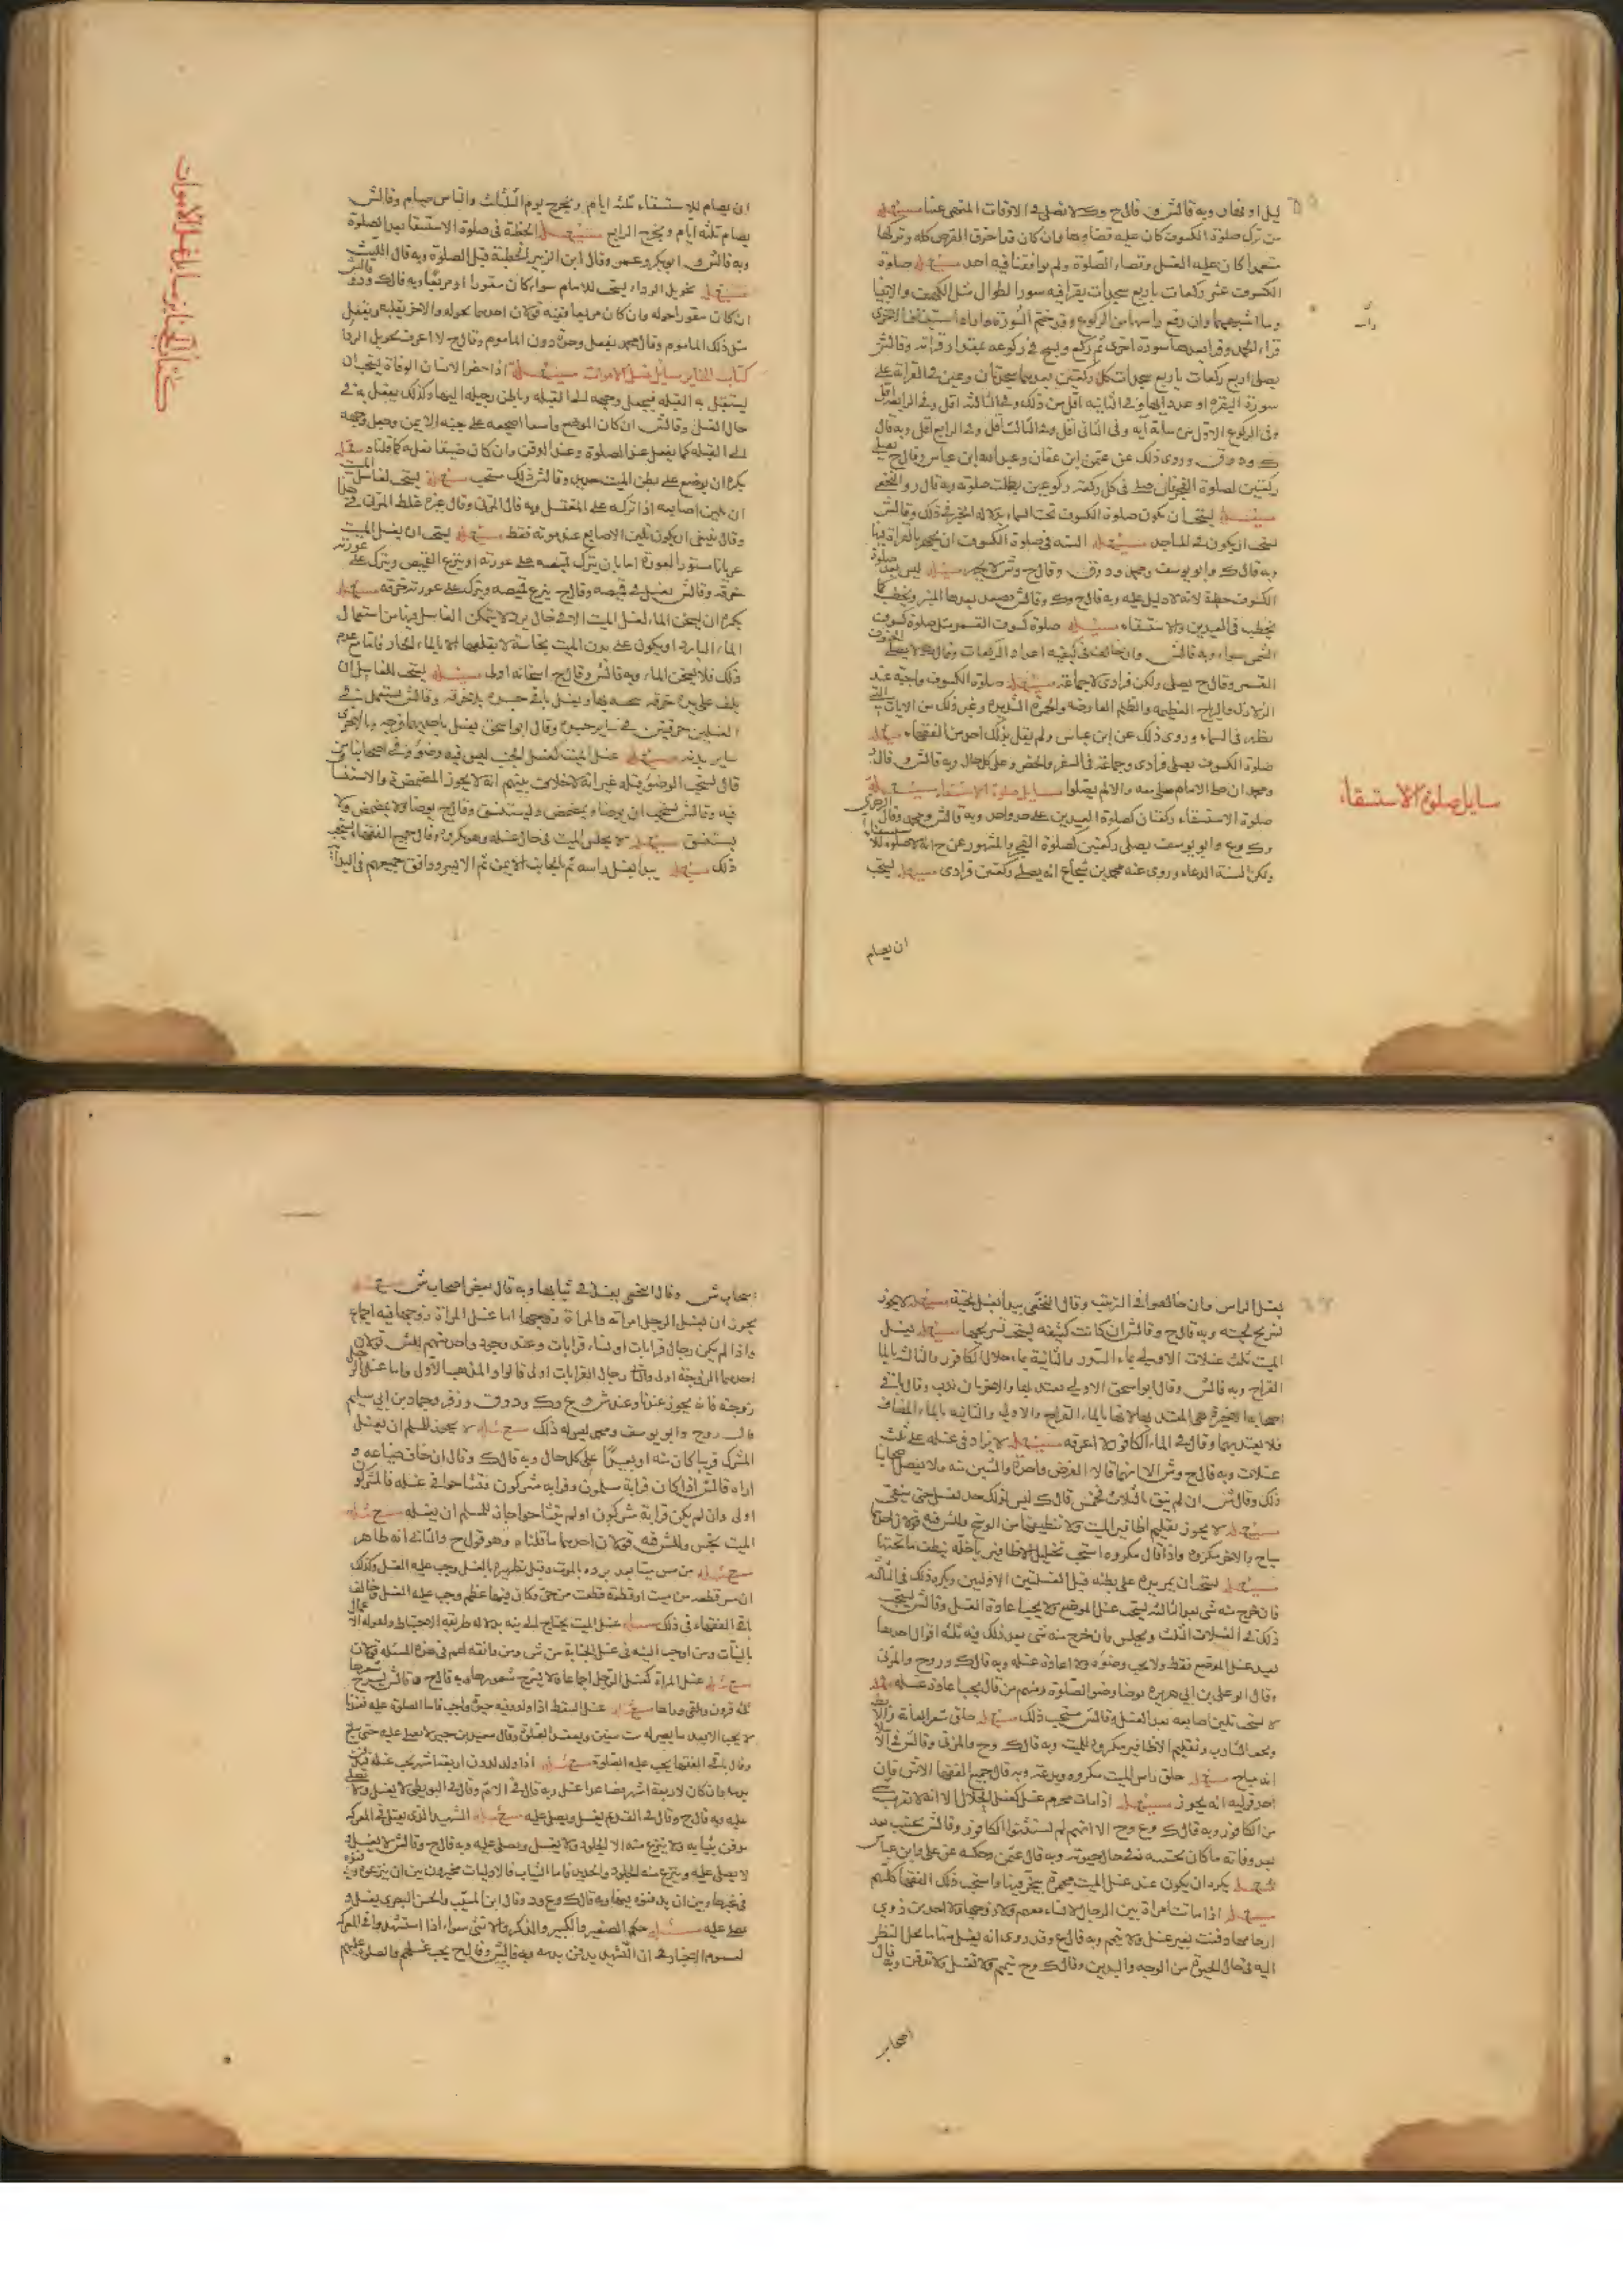 ليل او نهار وبه قال ش وقال ح وك لا تصلى في الاوقات المنهى عنها مسئلة
من ترك صلوة الكسوف كان عليه قضاوها وان كان قد احترق القرص كله وتركها
متعمدا كان عليه الغسل وقضاء الصلوة ولم يوافقنا فيه احد مسئلة صلوة
الكسوف عشر ركعات باربع سجدات يقرا فيه سورا لطوال مثل الكهف والانبيا
وما اشبههما وان رفع راسه من الركوع وقد ختم السورة
قراء الحمد وقرا بعدها سورة اخرى ثم ركع ويسبح في ركوعه بمقدار قراته وقال ش
يصلى اربع ركعات باربع سجدات كل ركعتين بعدهما سجدتان
سورة البقرة او عدد آيها وفي الثانيه اقل من ذلك وفي الثالثه اقل وفي الرابعة اقل
وفي الركوع الاول مائة آيه وفي الثاني اقل وفي الثالث اقل وفي الرابع اقل وبه قال
وروى ذلك عن عثمن ابن عفان وعبد الله ابن عباس وقال ح يصلى
ركعتين لصلوة الفجر فان صلى في كل ركعة ركوعين بطلت صلوته وبه قال
مسئلة يستحب ان يكون صلوة الكسوف تحت السماء وقال ش
يستحب ان يكون في المساجد مسئلة السنه في صلوة الكسوف ان يجهر بالقراة فيها
وبه قال ك وابو يوسف ومحمد ود وق وقال ح وش لا يجهر مسئلة ليس بعد صلوة
الكسوف خطبة لانه لا دليل عليه وبه قال ح وك وقال ش يصعد بعدها المنبر ويخطب كما
يخطب في العيدين والاستسقاء مسئلة صلوة كسوف القمر مثل صلوة كسوف
الشمس سواء وبه قال ش وان خالف في كيفيه اعداد الركعات وقال ك لا يصلى
القمر وقال ح يصلى ولكن فرادى لا جماعة مسئلة صلوة الكسوف واجبة عند
الزلازل والرياح العظيمه والظلم العارضه والحمرة الشديدة وغير ذلك من الايات التى
يظهر في السماء وروى ذلك عن ابن عباس ولم يقل بذلك احد من الفقهاء مسئلة
صلوة الكسوف يصلى فرادى وجماعة في السفر والحضر وعلى كل حال وبه قال ش وقال
ومحمد ان صلى الامام صلى معه والا لم يصلوا مسايل صلوة الاستسقاء مسئلة
صلوة الاستسقاء ركعتان كصلوة العيدين على حد واحد وبه قال ش ومحمد وقال الزهرى
وابو يوسف يصلى ركعتين كصلوة الفجر والمشهور عن ح انه لا صلوة للاستسقاء
ولكن السنة الدعاء وروى عنه محمد بن شجاع انه يصلى ركعتين فرادى مسئلة يستحب
ان يصام
مسايل صلوة الاستسقاء
ان يصام للاستسقاء ثلثه ايام ويخرج يوم الثالث والناس صيام وقال ش
يصام ثلثه ايام ويخرج الرابع مسئلة الخطبة في صلوة الاستسقا بعد الصلوة
وبه قال ش وابو بكر وعمر وقال ابن الزبير الخطبة قبل الصلوة وبه قال الليث
مسئلة تحويل الرداء يستحب للامام سواء كان مقورا او مربعا وبه قال ك وقال ش
ان كان مقورا حوله وان كان مربعا ففيه قولان احدهما يحوله والاخر يقلبه ويفعل
مثل ذلك الماموم وقال محمد يفعل وحده دون الماموم وقال ح لا اعرف تحويل الردا
كتاب الجنايز مسايل غسل الاموات مسئلة اذا حضر الانسان الوفاة يستحب ان
يستقبل به القبله فيجعل وجهه الى القبله وباطن رجليه اليها وكذلك يفعل به في
حال الغسل وقال ش ان كان الموضع واسعا اضجعه على جنبه الايمن وجعل وجهه
الى القبله كما يفعل عند الصلوة وعند الدفن وان كان ضيقا فعل به كما قلناه مسئلة
يكره ان يوضع على بطن الميت حديد وقال ش ذلك مستحب مسئلة يستحب لغاسل الميت
ان يلين اصابعه اذا تركه على المغتسل وبه قال المزنى وقال غيره غلط المزنى في هذا
وقال ينبغي ان يكون تليين الاصابع عند موته فقط مسئلة يستحب ان يغسل الميت
عريانا مستور العورة اما بان يترك قميصه على عورته او ينزع القميص ويترك على عورته
خرقة وقال ش يغسل في قميصه وقال ح ينزع قميصه ويترك على عورته خرقة مسئلة
يكره ان يسخن الماء لغسل الميت الا في حال برد لا يتمكن الغاسل فيها من استعمال
الماء البارد او يكون على بدن الميت نجاسة لا يقلعها الا الماء الحار فاما مع عدم
ذلك فلا يسخن الماء وبه قال ش وقال ح اسخانه اولى مسئلة يستحب للغاسل ان
يلف على يده خرقة ويغسل باقي جسده بلا خرقة وقال ش يستعمل في
الغسلين خرقتين في ساير جسده وقال ابو اسحق يغسل باحديهما فرجه وبالاخرى
ساير بدنه مسئلة غسل الميت كغسل الجنب ليس فيه وضوء وفي اصحابنا من
قال يستحب الوضوء قبله غير انه لا خلاف بينهم انه لا يجوز المضمضة والاستنشا
فيه وقال ش يستحب ان يوضا ويمضمض ويستنشق وقال ح يوضا ولا يمضمض ولا
يستنشق مسئلة لا يجلس الميت في حال غسله وهو مكروه وقال جميع الفقهاء يستحب
ذلك مسئلة يبدا بغسل راسه ثم بجانبه الايمن ثم الايسر ووافق جميعهم في البداة
كتاب الجنايز مسايل غسل الاموات
بغسل الراس وان خالفوا في الترتيب وقال النخعي يبدا بغسل لحيته مسئلة لا يجوز
تسريح لحيته وبه قال ح وقال ش ان كانت كثيفه يستحب تسريحها مسئلة يغسل
الميت ثلث غسلات الاولى بماء السدر والثانية بماء جلال الكافور والثالثة بالماء
القراح وبه قال ش وقال ابو اسحق الاولى يعتد بها والاخريان ندب وقال باقي
اصحابه الاخيرة هي المعتد بها لانها بالماء القراح والاولى والثانيه بالماء المضاف
فلا يعتد بهما وقال ح الماء الكافور لا اعرفه مسئلة لا يزاد في غسله على ثلث
غسلات وبه قال ح وش الا انهما قالا الفرض واحدة والسنن ثلثه ولا يفصل اصحابنا
ذلك وقال ش ان لم ينق بالثلاث فخمس قال ك ليس لذلك حد يغسل حتى ينقى
مسئلة لا يجوز تقليم اظافير الميت ولا تنظيفها من الوسخ وللش فيه قولان احدهما
مباح والاخر مكروه واذا قال مكروه استحب تخليل الاظافير باخلة ينظف ما تحتها
مسئلة يستحب ان يمر يده على بطنه قبل الغسلتين الاوليين ويكره ذلك في الثالثة
فان خرج منه شى بعد الثالثه يستحب غسل الموضع ولا يجب اعادة الغسل وقال ش يستحب
ذلك في الغسلات الثلث ويجلس وان خرج منه شى بعد ذلك فيه ثلثه اقوال احدها
يعيد غسل الموضع فقط ولا يجب وضوه ولا اعادة غسله وبه قال ك وح والمزنى
وقال ابو على بن ابي هريرة يوضا وضو الصلوة ومنهم من قال يجب اعادة غسله مسئلة
لا يستحب تليين اصابعه بعد الغسل وقال ش مستحب ذلك مسئلة حلق شعر العانة والابط
وحف الشارب وتقليم الاظافير مكروه للميت وبه قال ك وح والمزنى وقال ش في الا
انه مباح مسئلة حلق راس الميت مكروه وبدعة وبه قال جميع الفقها الا ش فان
احد قوليه انه يجوز مسئلة اذا مات محرم غسل كغسل الحلال الا انه لا تقربه
من الكافور وبه قال ك وع وح الا انهم لم يستثنوا الكافور وقال ش يجتنب بعد
بعد وفاته ما كان يجتنبه في حال حيوته وبه قال عثمن وحكيه عن على وابن عباس
مسئلة يكره ان يكون عند غسل الميت مجمرة يبخر فيها واستحب ذلك الفقها كلهم
مسئلة اذا ماتت امراة بين الرجال لا نساء معهم ولا زوجها ولا احد من ذوي
ارحامها دفنت بغير غسل ولا تيمم وبه قال ع وقد روى انه يغسل منها ما يحل النظر
اليه في حال الحيوة من الوجه واليدين وقال ك وح تيمم ولا تغسل ولا تدفن وبه قال
اصحاب
اصحاب ش وقال النخعي يغسل في ثيابها وبه قال بعض اصحاب ش مسئلة
يجوز ان يغسل الرجل امراته والمراة زوجها اما غسل المراة زوجها فيه اجماع
واذا لم يكن رجال قرابات او نساء قرابات وعند وجود واحد منهم للش قولان
احدهما الزوجة اولى والثا رجال القرابات اولى قالوا والمذهب الاول واما غسل الرجل
زوجته فانه يجوز عندنا وعند ش وع وك ود وق وزفر وحماد بن ابي سليم
قال وح وابو يوسف ومحمد ليس له ذلك مسئلة لا يجوز للمسلم ان يغسل
المشرك قريبا كان منه او بعيدا على كل حال وبه قال ك وقال ان خاف ضياعه و
اراه قال ش اذا كان قرابة مسلمون وقرابه مشركون فتشاحوا في غسله فالمشركون
اولى وان لم يكن قرابة مشركون او لم يتشاحوا جاز للمسلم ان يغسله مسئلة
الميت نجس وللش فيه قولان احدهما ما قلناه وهو قول ح والثاني انه طاهر
مسئلة من مس ميتا بعد برده بالموت وقبل تطهيره بالغسل وجب عليه الغسل وكذلك
ان مس قطعه من ميت او قطعة قطعت من حى وكان فيها عظم وجب عليه الغسل وخالف
باقي الفقهاء في ذلك مسئلة غسل الميت يحتاج الى نيه بدلالة طريقه الاحتياط ولقوله الاعمال
بالنيات ومن اوجب النيه في غسل الجنابة من ش ومن وافقه لهم في هذه المسئله قولان
مسئلة غسل المراة كغسل الرجل اجماعا ولا يسرح شعورها وبه قال ح وقال ش يسرح شعرها
ثلثه قرون ويلقى وراها مسئلة غسل السقط اذا ولد وفيه حيوة واجب فاما الصلوة عليه فعندنا
لا يجب الا بعد ما يصير له ست سنين ويعقل الصلوة وقال سعيد بن جبير لا يصلى عليه حتى يبلغ
وقال باقي الفقها يجب عليه الصلوة مسئلة اذا ولد لدون اربعة اشهر لا يجب غسله ويدفن
بدمه وان كان لاربعة اشهر فصاعدا غسل وبه قال في الام وقال في البويطي لا يغسل ولا يصلى
عليه وبه قال ح وقال في القديم يغسل ويصلى عليه مسئلة الشهيد الذى يقتل في المعركه
يدفن بثيابه ولا ينزع منه الا الجلود ولا يغسل ويصلى عليه وبه قال ح وقال ش لا يغسل و
لا يصلى عليه وينزع منه الجلود والحديد فاما الثياب فالاوليات مخيرون بين ان ينزعوه ويدفنوه
في غيرها وبين ان يدفنوه فيها وبه قال ك وع ود وقال ابن المسيب والحسن البصرى يغسل و
يصلى عليه مسئلة حكم الصغير والكبير والذكر والانثى سواء اذا استشهدوا في المعركه
لعموم الاخبار في ان الشهيد يدفن بدمه وبه قال ش وقال ح يجب غسلهم والصلوة عليهم